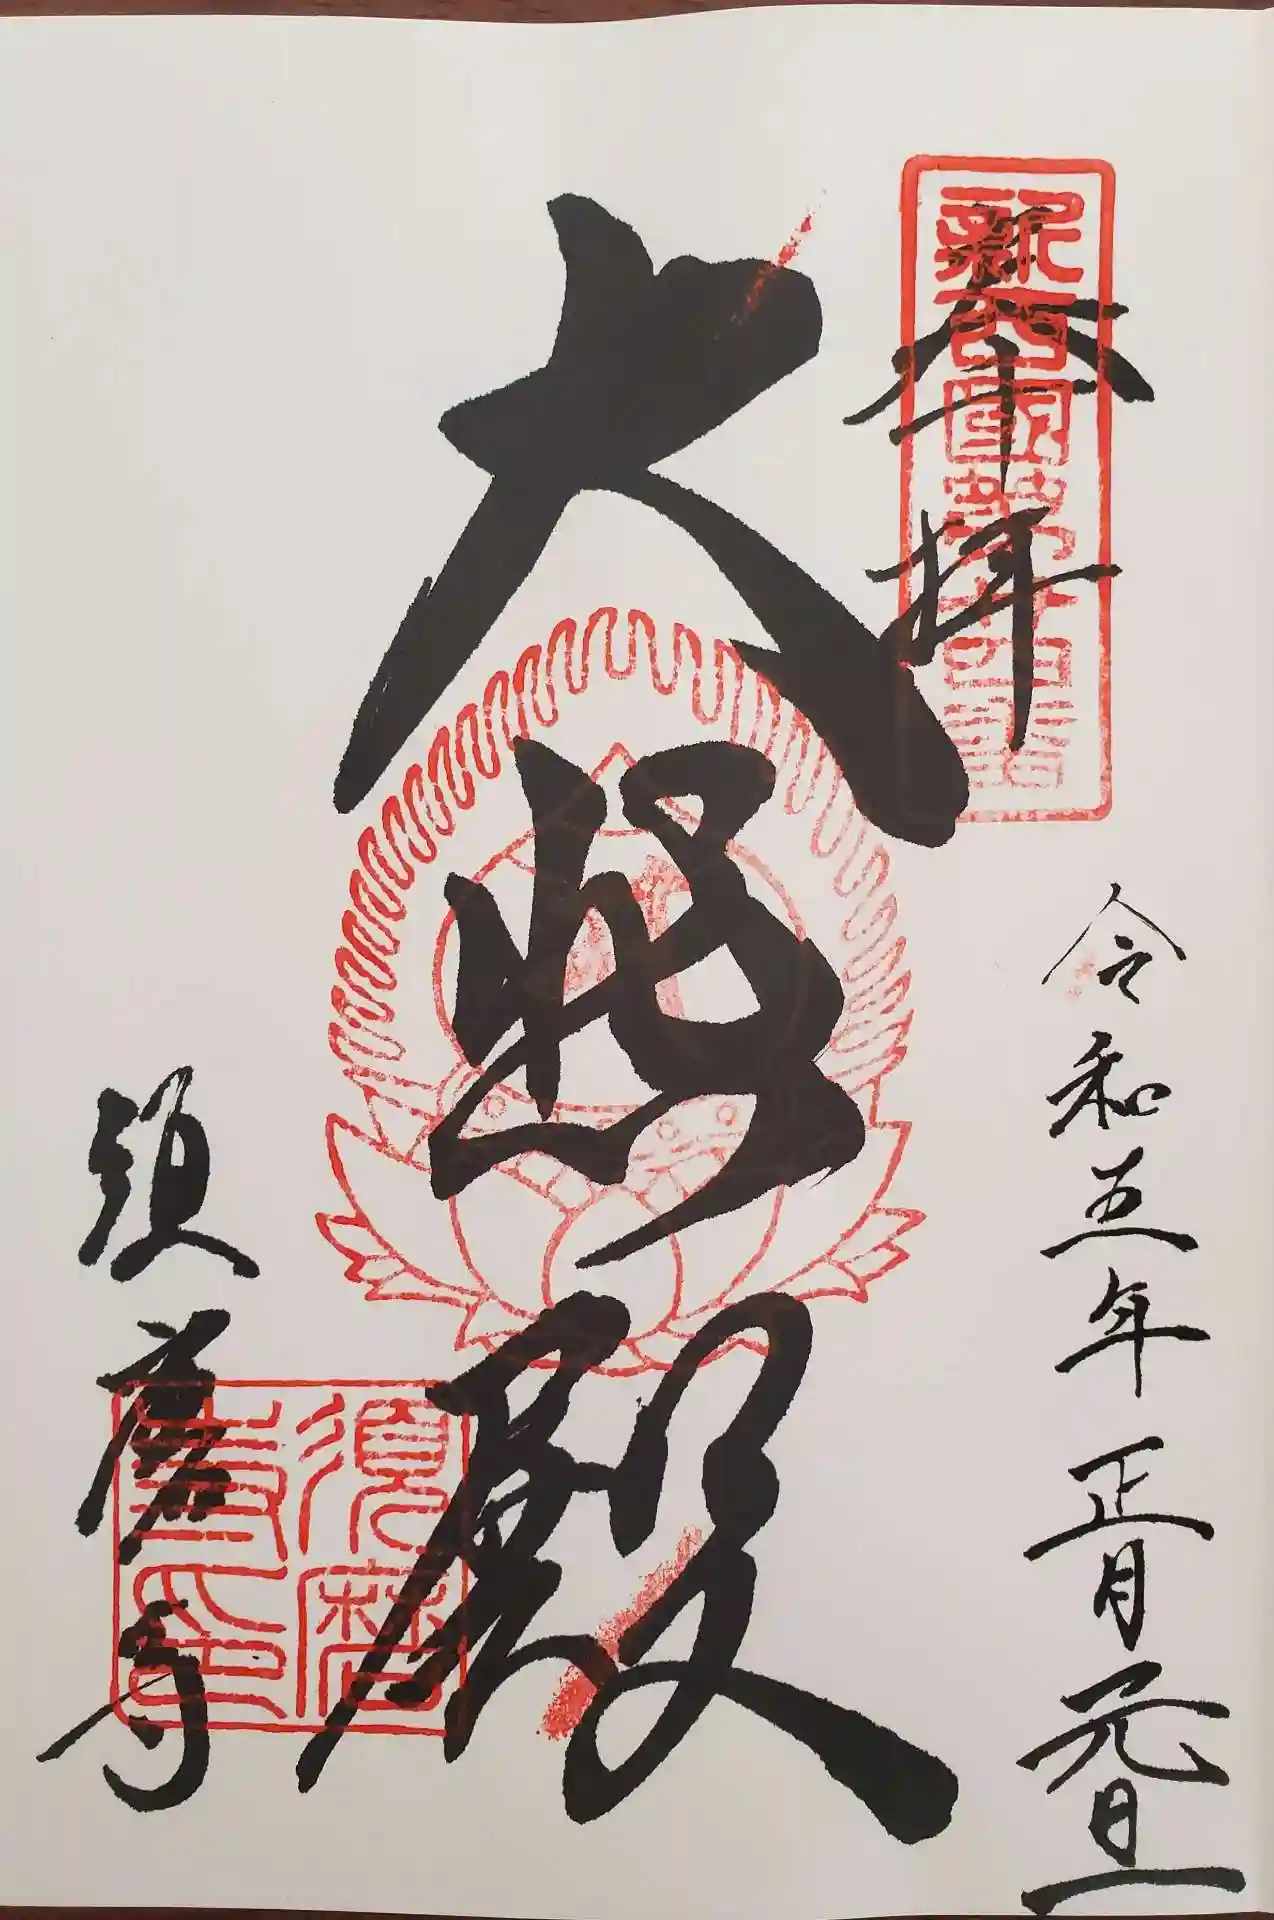 新西國第廿四番
奉拝
令和五年正月元旦
大悲殿
須磨寺
須磨
寺印